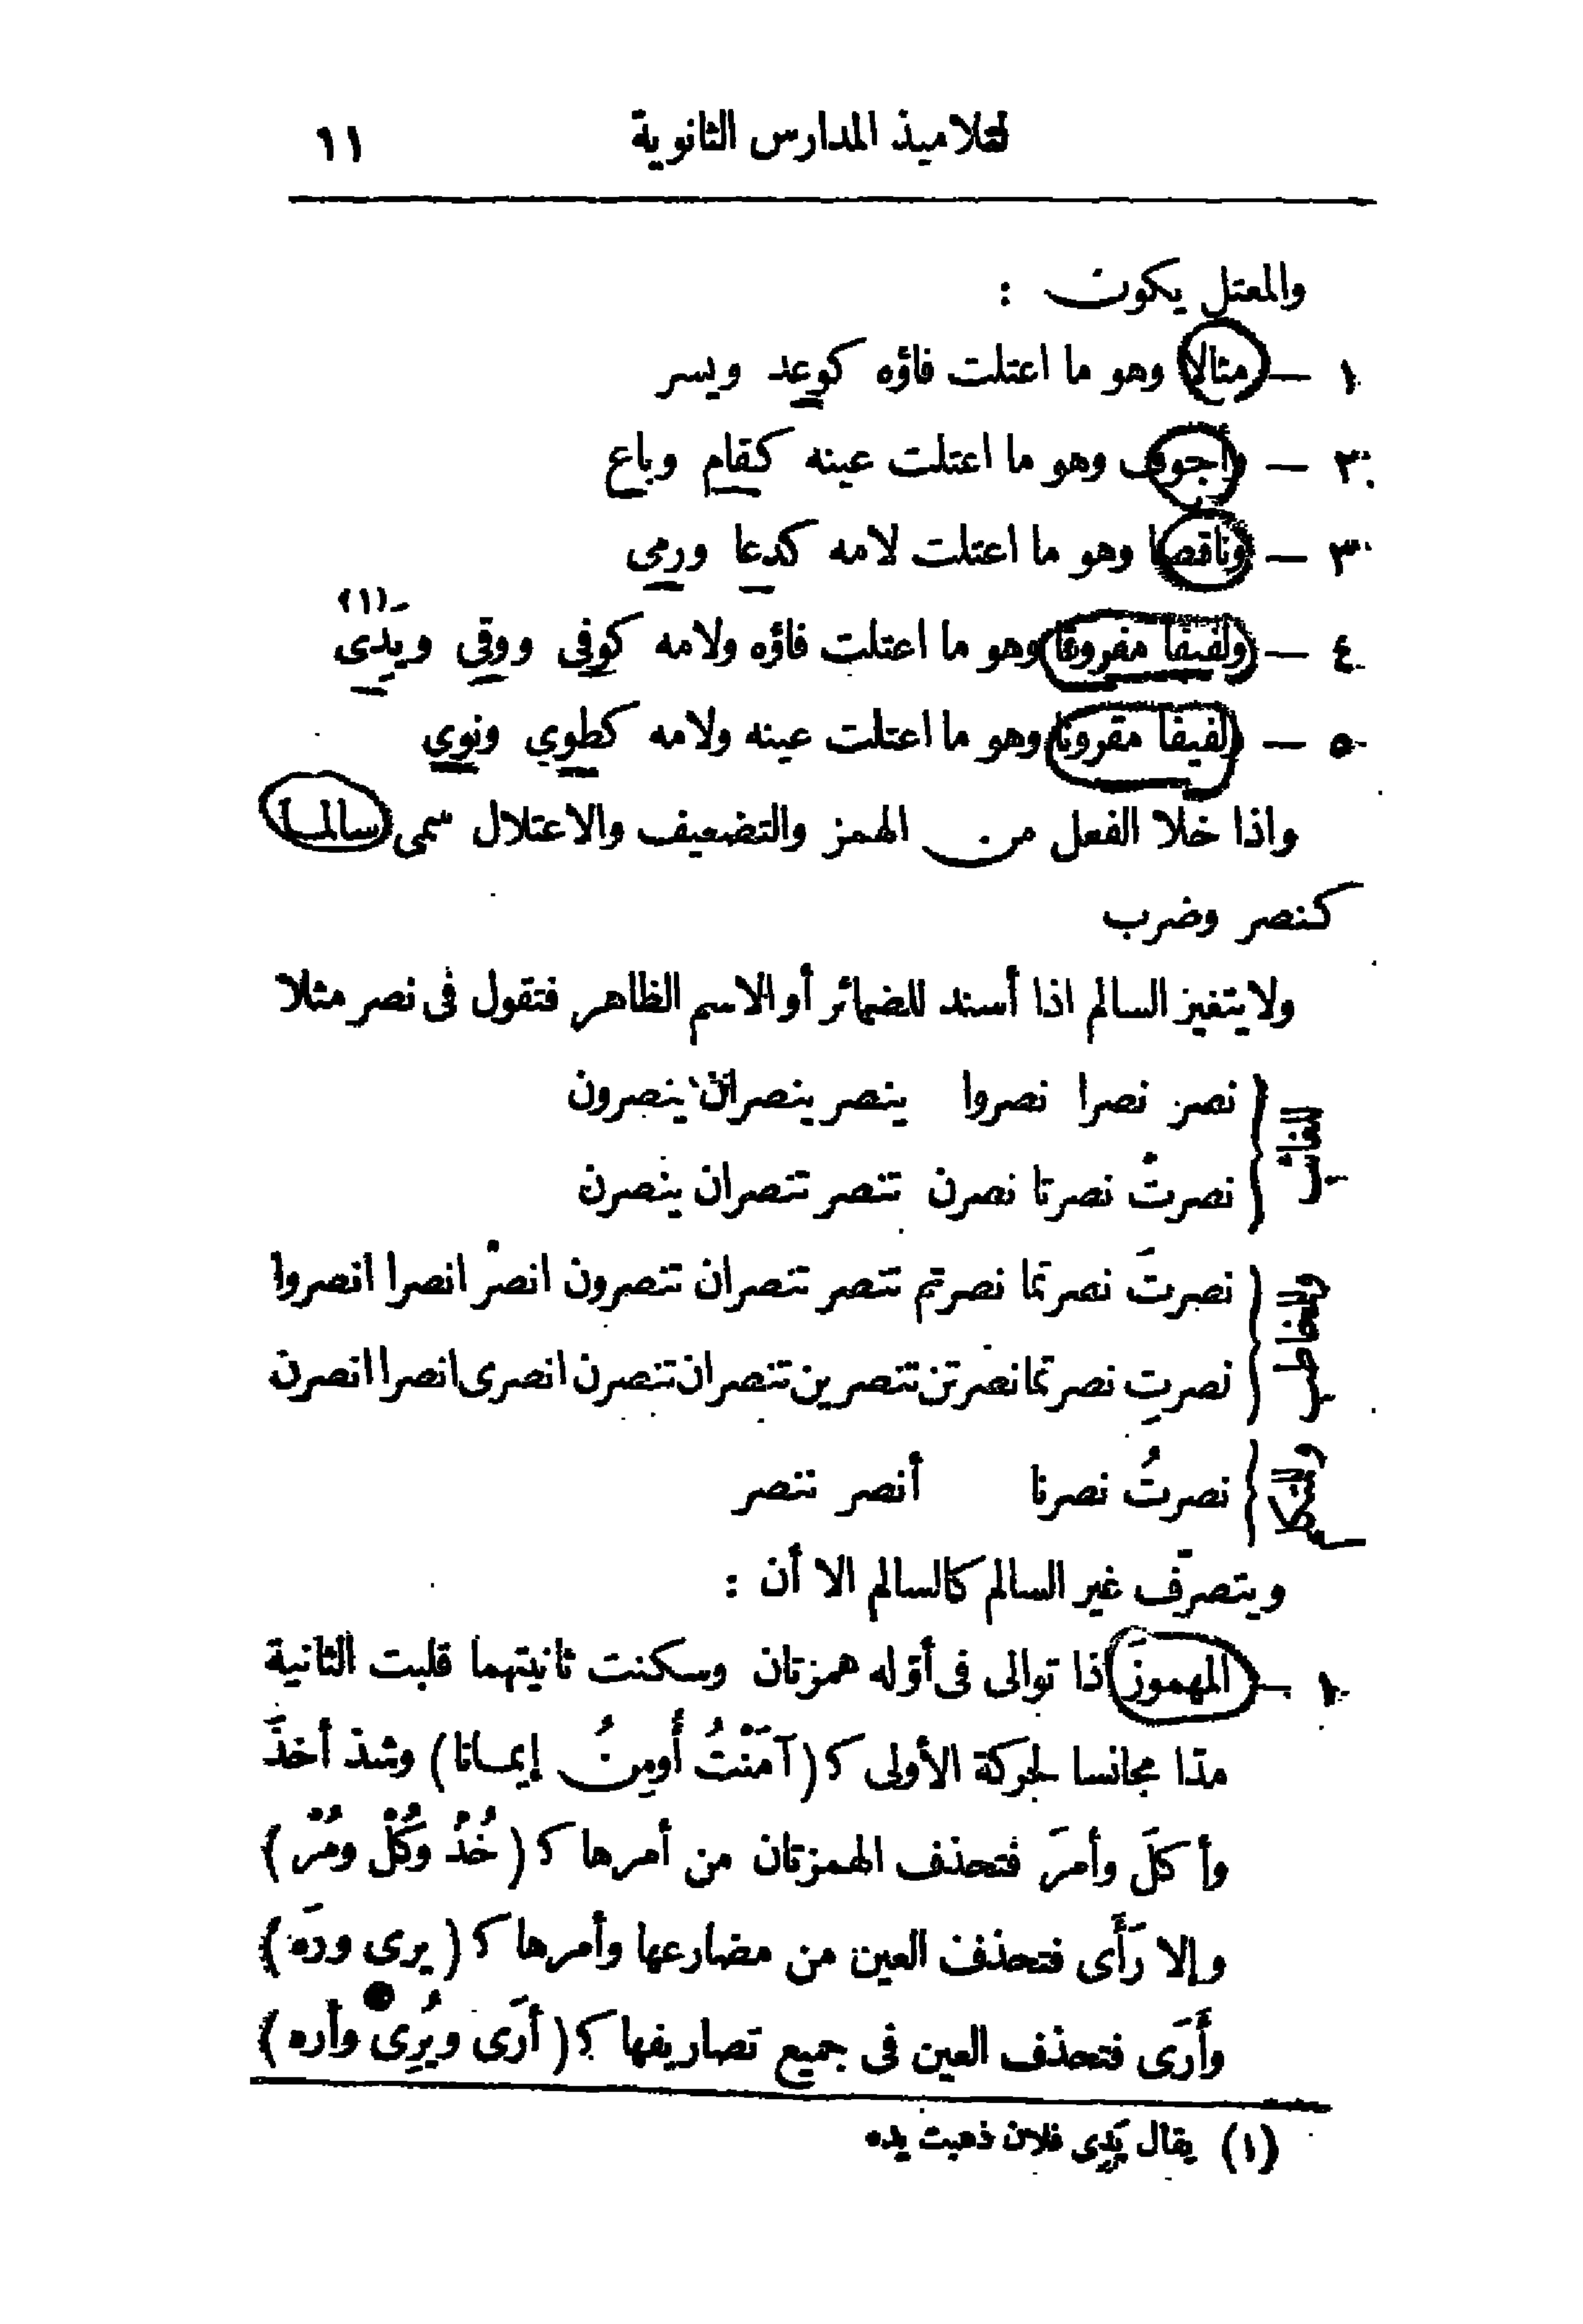 لتلاميذ المدارس الثانوية ١١
والمعتل يكون :
١ — مثالا وهو ما اعتلت فاؤه كوعد ويسر
٢ — وأجوف وهو ما اعتلت عينه كقام وباع
٣ — وناقصا وهو ما اعتلت لامه كدعا ورمى
٤ — ولفيفا مفروقا وهو ما اعتلت فاؤه ولامه كوفى ووقى ويدى (١)
٥ — ولفيفا مقرونا وهو ما اعتلت عينه ولامه كطوي ونوي
واذا خلا الفعل من الهمز والتضعيف والاعتلال سمى سالما
كنصر وضرب
ولا يتغير السالم اذا أسند للضمائر أو الاسم الظاهر فتقول فى نصر مثلا
للغائب
نصر نصرا نصروا ينصر ينصران ينصرون
نصرتْ نصرتا نصرن تنصر تنصران ينصرن
وللمخاطب
نصرتَ نصرتما نصرتم تنصر تنصران تنصرون انصرْ انصرا انصروا
نصرتِ نصرتما نصرتن تنصرين تنصران تنصرن انصرى انصرا انصرن
وللمتكلم
نصرتُ نصرنا أنصر ننصر
ويتصرّف غير السالم كالسالم الا أن :
١ — المهموزَ اذا توالى فى أوّله همزتان وسكنت ثانيتهما قلبت الثانية
مدّا مجانسا لحركة الأولى ك (آمَنْتُ أُومِنُ إيمانا) وشذ أخذَ
وأكلَ وأمرَ فتحذف الهمزتان من أمرها ك (خُذْ وكُلْ ومُرْ)
وإلا رَأَى فتحذف العين من مضارعها وأمرها ك (يرى ورَه)
وأَرَى فتحذف العين فى جميع تصاريفها ك (أرَى ويُرِى وأره)
(١) يقال يَدِى فلان ذهبت يده